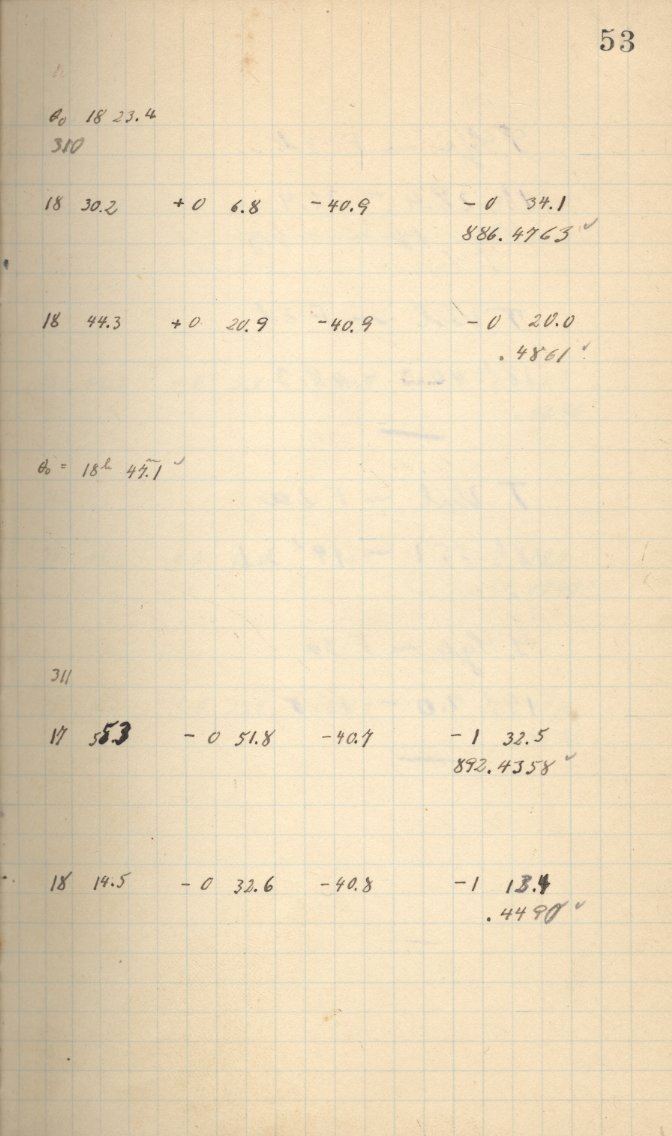 53
θ₀ 18 23.4
310
18 30.2 +0 6.8 -40.9 -0 34.1
886.4763 ✓
18 44.3 +0 20.9 -40.9 -0 20.0
.4861 ✓
θ₀ = 18ʰ 47ᵐ.1 ✓
311
17 55.3 -0 51.8 -40.7 -1 32.5
892.4358 ✓
18 14.5 -0 32.6 -40.8 -1 13.4
.4490 ✓